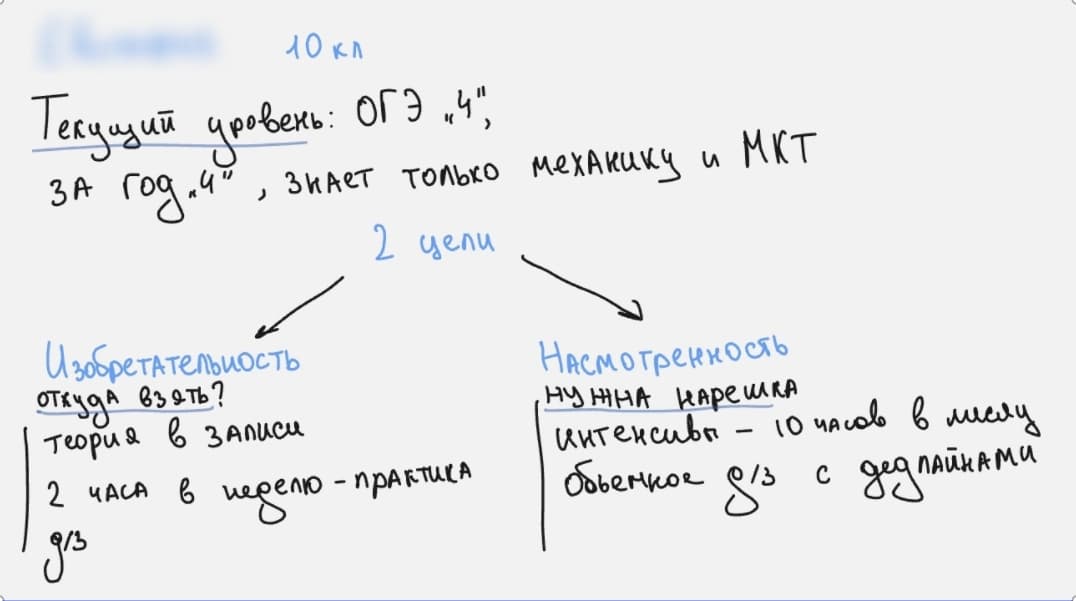 10 кл
Текущий уровень: ОГЭ „4",
за год „4", знает только механику и МКТ
2 цели
Изобретательность
откуда взять?
теория в записи
2 часа в неделю - практика
д/з
Насмотренность
нужна нарешка
интенсивы - 10 часов в месяц
Объемное д/з с дедлайнами